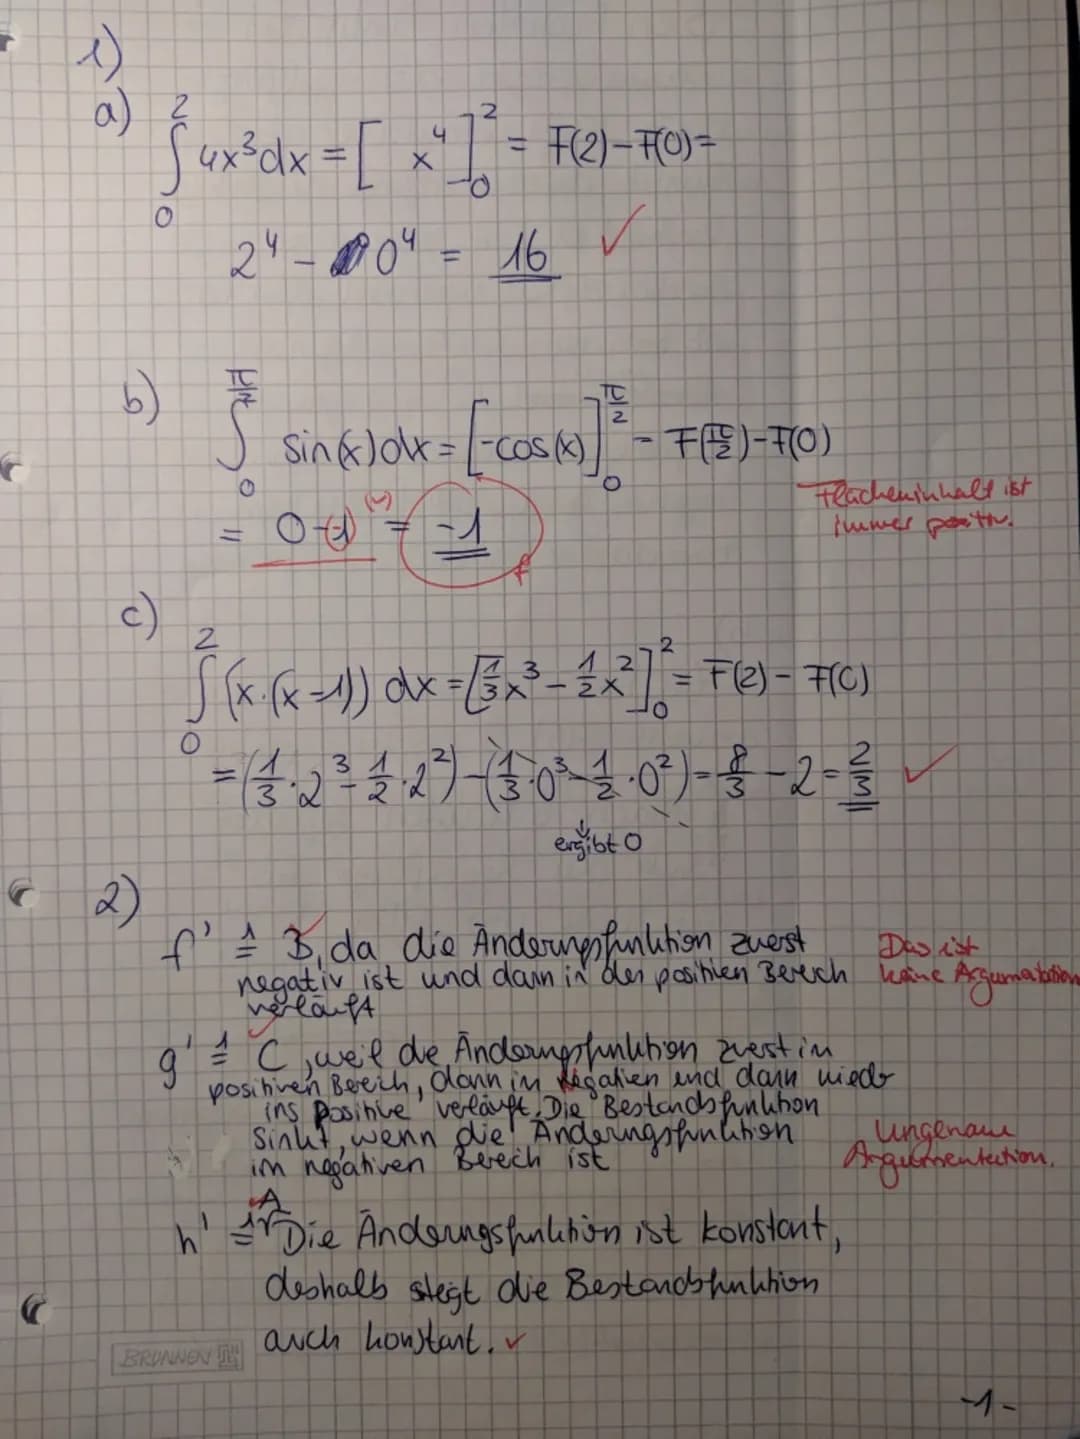 1)
a) ∫₀² 4x³dx = [ x⁴ ]₀² = F(2)-F(0)=
2⁴ - 0⁴ = 16 ✓
b) ∫₀^(π/2) sin(x)dx = [-cos(x)]₀^(π/2) = F(π/2)-F(0)
Flächeninhalt ist
immer positiv.
= 0-1 (-) = -1 f
c) ∫₀² (x·(x-1)) dx = [1/3 x³ - 1/2 x²]₀² = F(2) - F(0)
= (1/3 · 2³ - 1/2 · 2²) - (1/3 · 0³ - 1/2 · 0²) = 8/3 - 2 = 2/3 ✓
↓
ergibt 0
2)
f' ≙ B, da die Änderungsfunktion zuerst
negativ ist und dann in den positiven Bereich
verläuft
Das ist
keine Argumentation
g' ≙ C, weil die Änderungsfunktion zuerst im
positiven Bereich, dann im negativen und dann wieder
ins positive verläuft. Die Bestandsfunktion
sinkt, wenn die Änderungsfunktion
im negativen Bereich ist
Ungenaue
Argumentation.
A
h' ≙ Die Änderungsfunktion ist konstant,
deshalb steigt die Bestandsfunktion
auch konstant. ✓
BRUNNEN
-1-